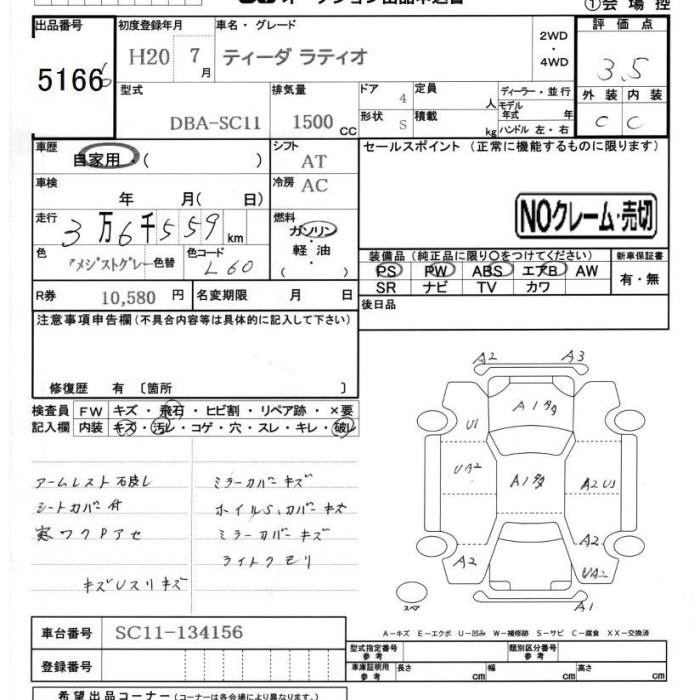 ①会場控
出品番号 初度登録年月 車名・グレード 2WD・4WD 評価点
51666 H20 7月 ティーダ ラティオ 3.5
型式 排気量 ドア 定員 ディーラー・並行 外装 内装
DBA-SC11 1500cc 4 人 モデル年式 年 C C
形状 S 積載 kg ハンドル 左・右
車歴 自家用・( ) シフト AT セールスポイント(正常に機能するものに限ります)
車検 年 月(日) 冷房 AC
NOクレーム・売切
走行 3万6千559km 燃料 ガソリン・軽油・( )
色 アメジストグレー 色替 色コード L60
装備品(純正品に限り○をつけてください) 新車保証書
PS PW ABS エアB AW 有・無
SR ナビ TV カワ
R券 10,580円 名変期限 月 日
後日品
注意事項申告欄(不具合内容等は具体的に記入して下さい)
修復歴 有 〔箇所 〕
検査員 FW キズ・飛石・ヒビ割・リペア跡・×要
記入欄 内装 キズ・汚レ・コゲ・穴・スレ・キレ・破レ
アームレスト ミラーカバーキズ
シートカバー付 ホイルS、カバーキズ
ミラーカバーキズ
ライトクモリ
キズUスリキズ
A2 A3
A1多
U1
UA2 A1多 A2 U1
A2
A2 UA2
スペア A1
A-キズ E-エクボ U-凹み W-補修跡 S-サビ C-腐食 XX-交換済
車台番号 SC11-134156
登録番号
型式指定番号 参考 類別区分番号 参考
車庫証明用 参考 長さ cm 幅 cm 高さ cm
希望出品コーナー(コーナーは各会場により異なります。)